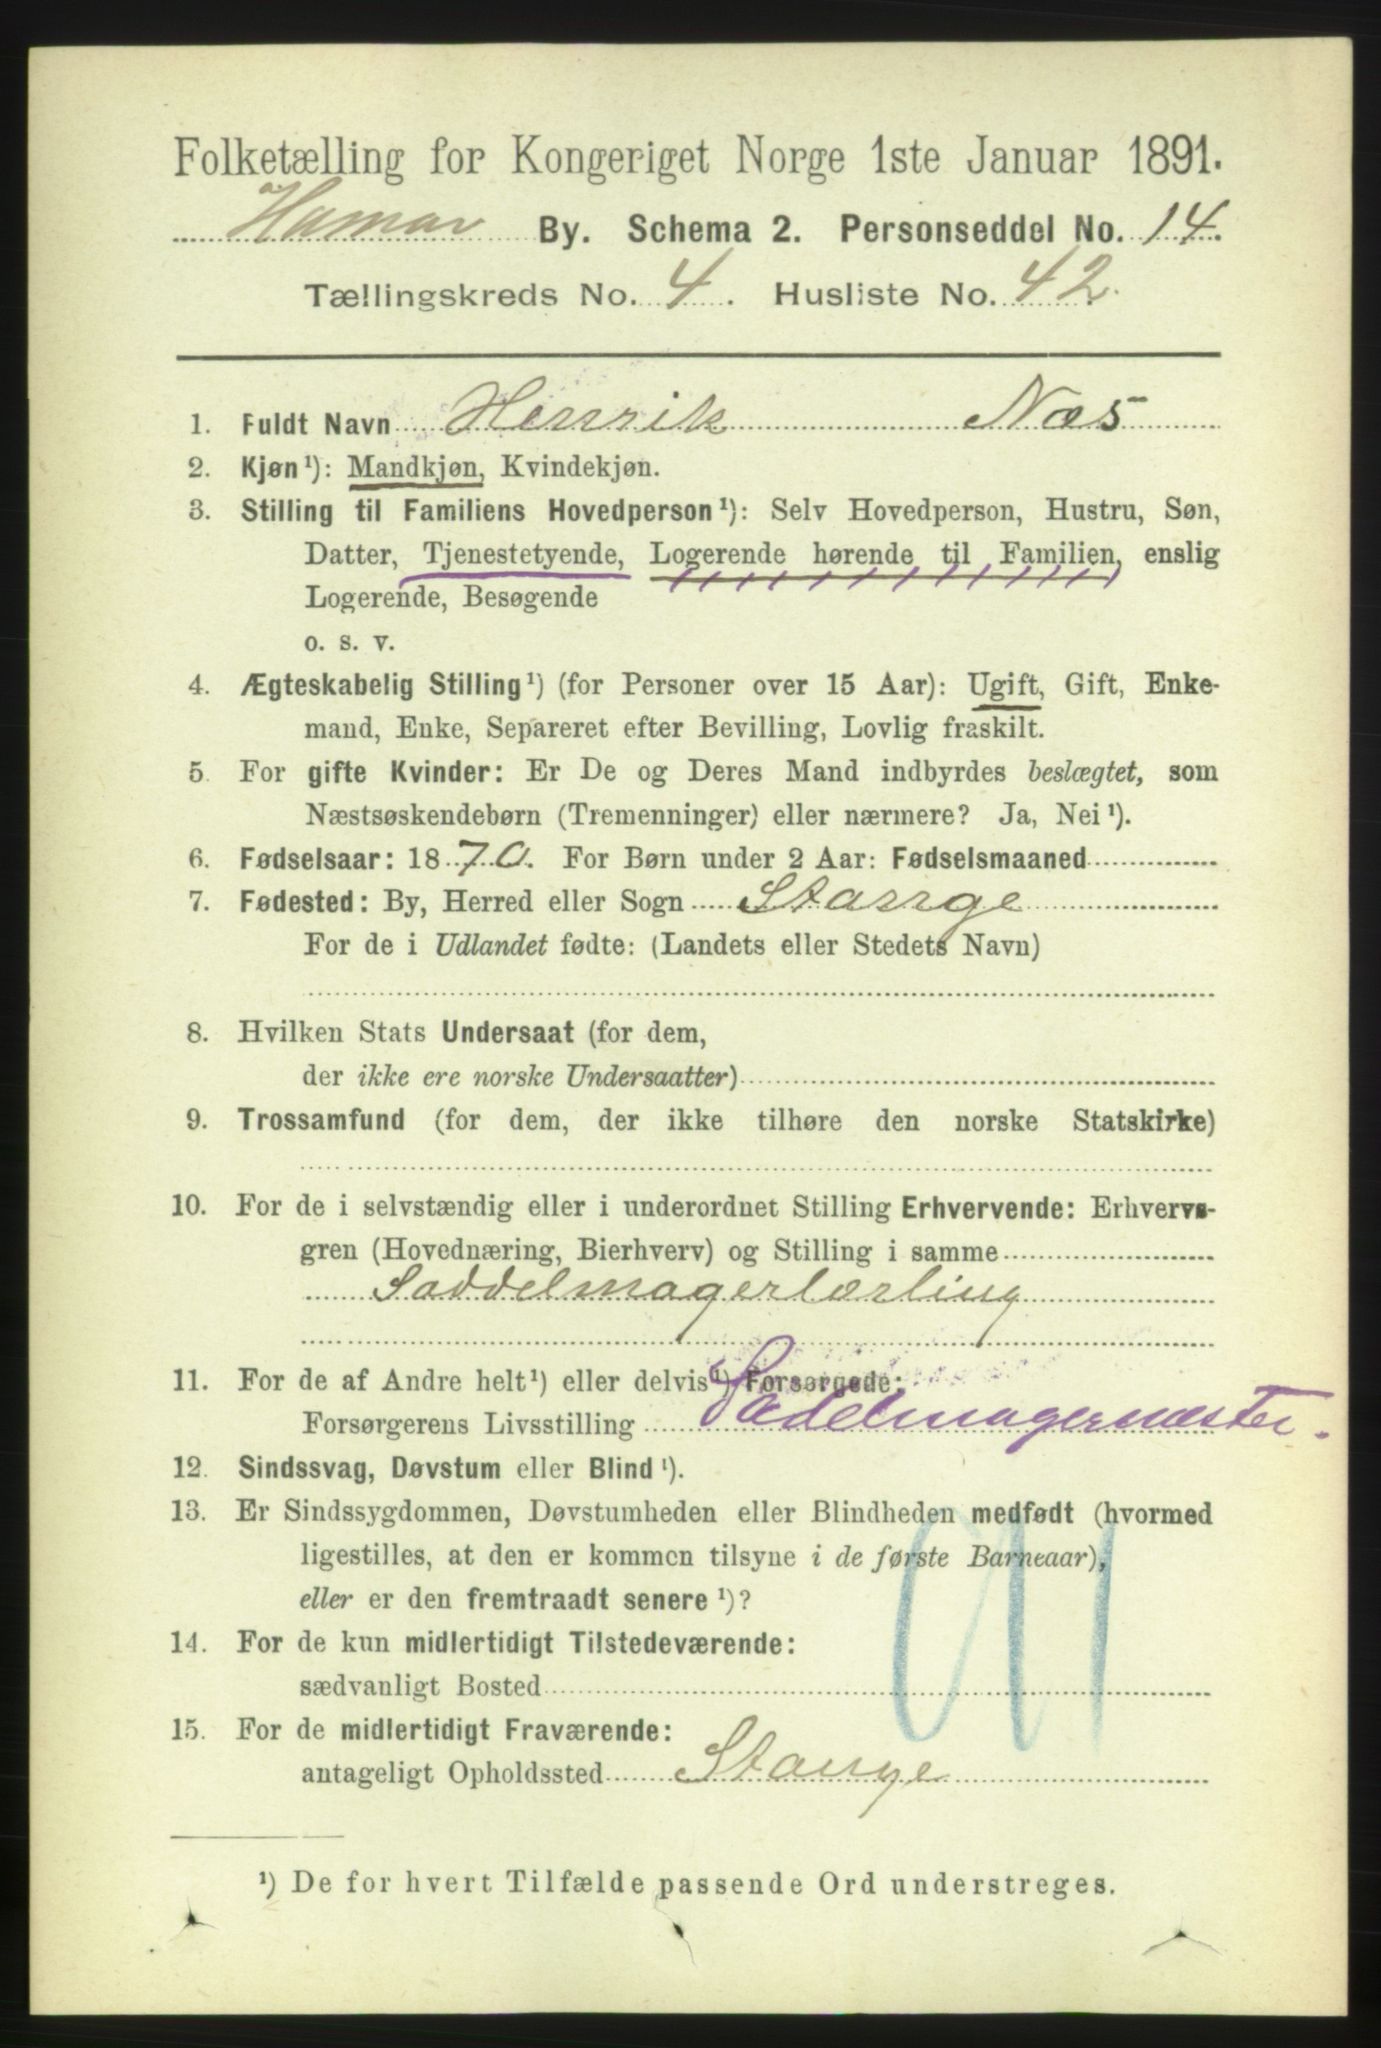 Folketælling for Kongeriget Norge 1ste Januar 1891.
Hamar By. Schema 2. Personseddel No. 14.
Tællingskreds No. 4. Husliste No. 42.
1. Fuldt Navn Henrik Næs
2. Kjøn¹): Mandkjøn, Kvindekjøn.
3. Stilling til Familiens Hovedperson¹): Selv Hovedperson, Hustru, Søn,
Datter, Tjenestetyende, Logerende hørende til Familien, enslig
Logerende, Besøgende
o. s. v.
4. Ægteskabelig Stilling¹) (for Personer over 15 Aar): Ugift, Gift, Enke-
mand, Enke, Separeret efter Bevilling, Lovlig fraskilt.
5. For gifte Kvinder: Er De og Deres Mand indbyrdes beslægtet, som
Næstsøskendebørn (Tremenninger) eller nærmere? Ja, Nei¹).
6. Fødselsaar: 1870. For Børn under 2 Aar: Fødselsmaaned
7. Fødested: By, Herred eller Sogn Stange
For de i Udlandet fødte: (Landets eller Stedets Navn)
8. Hvilken Stats Undersaat (for dem,
der ikke ere norske Undersaatter)
9. Trossamfund (for dem, der ikke tilhøre den norske Statskirke)
10. For de i selvstændig eller i underordnet Stilling Erhvervende: Erhvervs-
gren (Hovednæring, Bierhverv) og Stilling i samme
Saddelmagerlærling
11. For de af Andre helt¹) eller delvis¹) Forsørgede:
Forsørgerens Livsstilling Sadelmagermester.
12. Sindssvag, Døvstum eller Blind¹).
13. Er Sindssygdommen, Døvstumheden eller Blindheden medfødt (hvormed
ligestilles, at den er kommen tilsyne i de første Barneaar),
eller er den fremtraadt senere¹)?
14. For de kun midlertidigt Tilstedeværende:
sædvanligt Bosted
15. For de midlertidigt Fraværende:
antageligt Opholdssted Stange
¹) De for hvert Tilfælde passende Ord understreges.